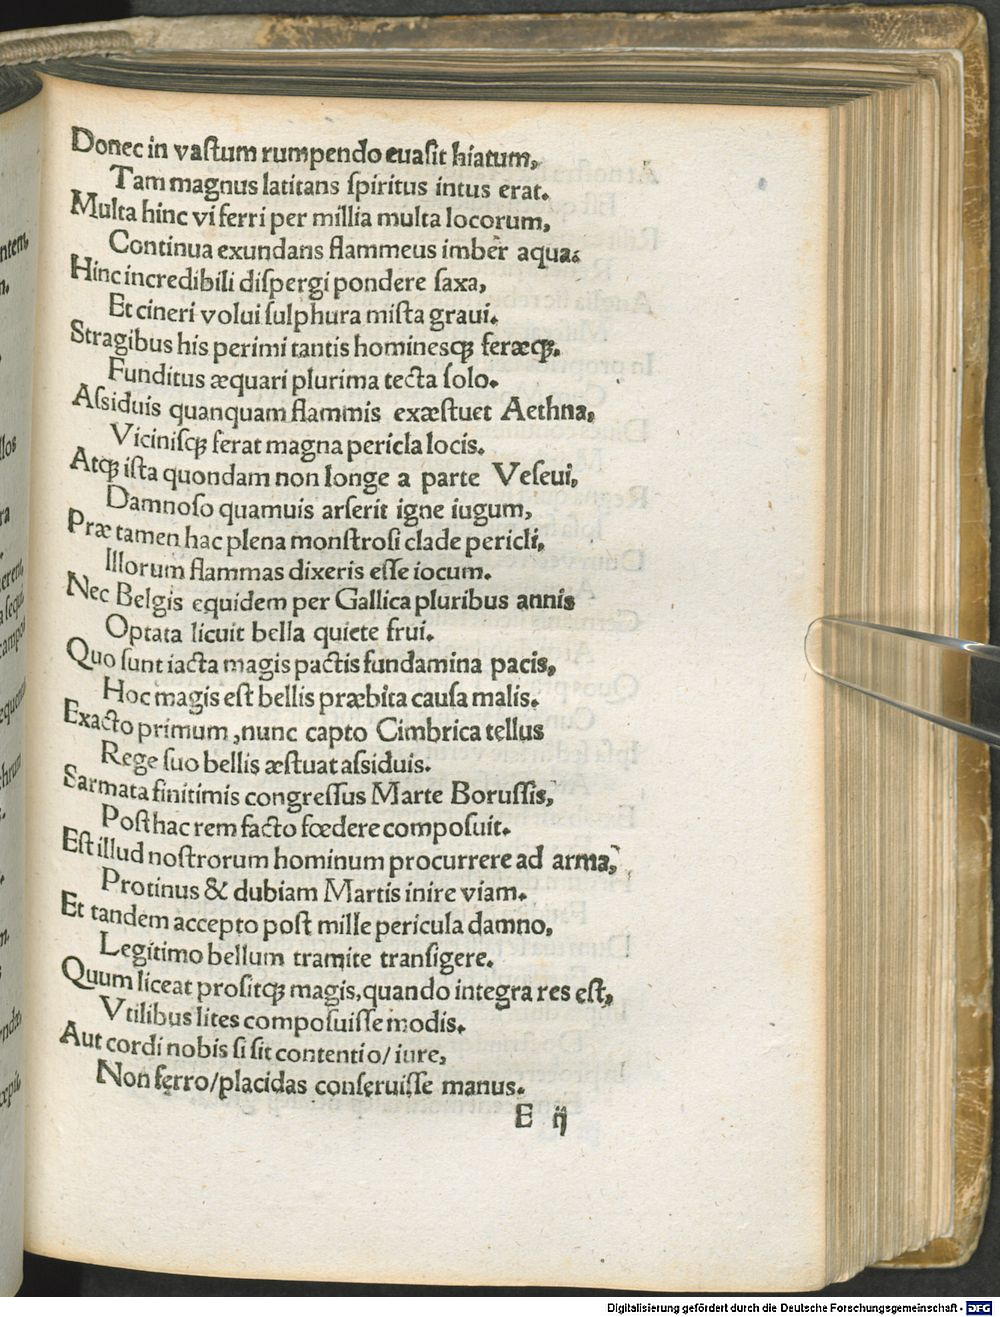 Donec in vaſtum rumpendo euaſit hiatum,
Tam magnus latitans ſpiritus intus erat.
Multa hinc vi ferri per millia multa locorum,
Continua exundans flammeus imber aqua.
Hinc incredibili diſpergi pondere ſaxa,
Et cineri volui ſulphura miſta graui.
Stragibus his perimi tantis hominesqꝫ feræqꝫ.
Funditus æquari plurima tecta ſolo.
Aſsiduis quanquam flammis exæſtuet Aethna,
Viciniſqꝫ ferat magna pericla locis.
Atqꝫ iſta quondam non longe a parte Veſeui,
Damnoſo quamuis arſerit igne iugum,
Præ tamen hac plena monſtroſi clade pericli,
Illorum flammas dixeris eſſe iocum.
Nec Belgis equidem per Gallica pluribus annis
Optata licuit bella quiete frui.
Quo ſunt iacta magis pactis fundamina pacis,
Hoc magis eſt bellis præbita cauſa malis.
Exacto primum ,nunc capto Cimbrica tellus
Rege ſuo bellis æſtuat aſsiduis.
Sarmata finitimis congreſſus Marte Boruſſis,
Poſthac rem facto fœdere compoſuit.
Eſt illud noſtrorum hominum procurrere ad arma,
Protinus & dubiam Martis inire viam.
Et tandem accepto poſt mille pericula damno,
Legitimo bellum tramite tranſigere.
Quum liceat proſitqꝫ magis,quando integra res eſt,
Vtilibus lites compoſuiſſe modis.
Aut cordi nobis ſi ſit contentio/ iure,
Non ferro/placidas conſeruiſſe manus.
E ij
ntem,
n.
llos
ra
nerem,
campos
chrum
Digitalisierung gefördert durch die Deutsche Forschungsgemeinschaft - DFG